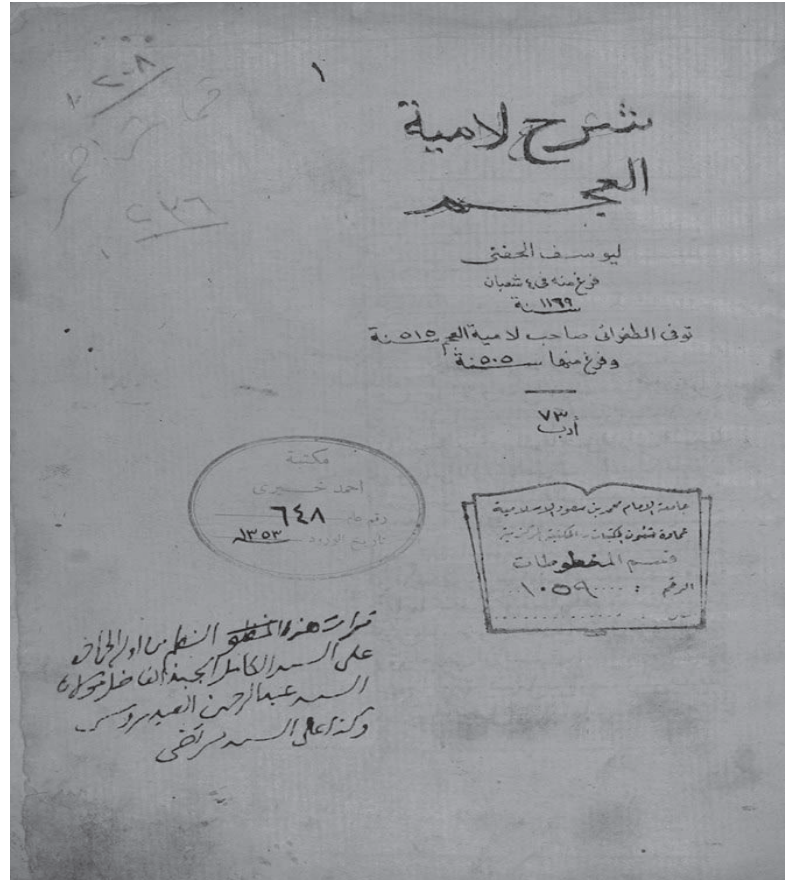 ٢٠٨
١
٢٣٦
شرح لامية
العجم
ليوسف الحفنى
فرغ منه فى ٤ شعبان
سنة ١١٦٩
توفى الطغرائى صاحب لامية العجم سنة ٥١٥
وفرغ منها سنة ٥٠٥
٧٣
أدب
مكتبة
احمد خيرى
رقم عام ٦٤٨
تاريخ الورود ١٣٥٣
جامعة الإمام محمد بن سعود الإسلامية
عمادة شئون المكتبات - المكتبة المركزية
قسم المخطوطات
الرقم : ١٠٥٩
قرات هذه النظم من اوله الى
على السيد الكامل الفاضل مولانا
السيد عبد الرحمن العيدروس
وكذا على السيد مرتضى